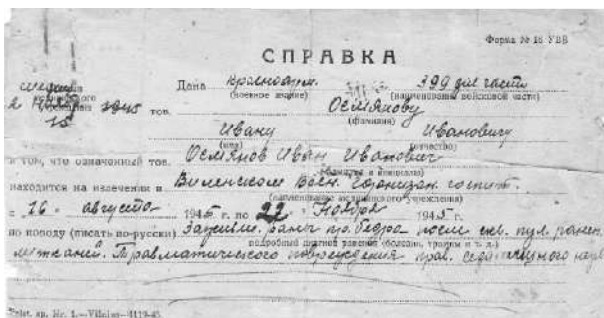 Форма № 16 УВВ
СПРАВКА
Дана красноарм. 399 див части
(военное звание) (наименование войсковой части)
1945 тов. Осмянову
(фамилия)
Ивану Ивановичу
(имя) (отчество)
в том, что означенный тов. Осмянов Иван Иванович
(фамилия и инициалы)
находится на излечении в Виленском Воен. Гарнизон. госпит.
(наименование медицинского учреждения)
с 16 августа 1945 г. по 22 Ноября 1945 г.
по поводу (писать по-русски) Заживл. раны пр. бедра после скв. пул. ранен.
подробный диагноз ранения (болезни, травмы и т. д.)
м/тканей. Травматического повреждения прав. седалищного нерв
Nr. 1.—Vilnius—4119-45.